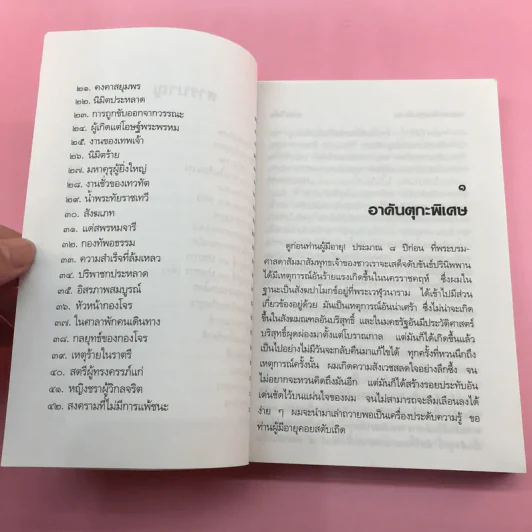 ๒๑. คงคาสยุมพร
๒๒. นิมิตประหลาด
๒๓. การถูกขับออกจากวรรณะ
๒๔. ผู้เกิดแต่โอษฐ์พระพรหม
๒๕. งานของเทพเจ้า
๒๖. นิมิตร้าย
๒๗. มหาคุรุผู้ยิ่งใหญ่
๒๘. งานชั่วของเทวทัต
๒๙. น้ำพระทัยราชเทวี
๓๐. สังฆเภท
๓๑. แด่สพรหมจารี
๓๒. กองทัพอธรรม
๓๓. ความสำเร็จที่ล้มเหลว
๓๔. ปริพาชกประหลาด
๓๕. อิสรภาพสมบูรณ์
๓๖. หัวหน้ากองโจร
๓๗. ในศาลาพักคนเดินทาง
๓๘. กลยุทธ์ของกองโจร
๓๙. เหตุร้ายในราตรี
๔๐. สตรีผู้ทรงครรภ์แก่
๔๑. หญิงชราผู้วิกลจริต
๔๒. สงครามที่ไม่มีการแพ้ชนะ
๑
อาคันตุกะพิเศษ
ดูก่อนท่านผู้มีอายุ! ประมาณ ๘ ปีก่อน ที่พระบรม-
ศาสดาสัมมาสัมพุทธเจ้าของชาวเราจะเสด็จดับขันธ์ปรินิพพาน
ได้มีเหตุการณ์อันร้ายแรงเกิดขึ้นในนครราชคฤห์ ซึ่งผมใน
ฐานะเป็นสังฆปาโมกข์อยู่ที่พระเวฬุวนาราม ได้เข้าไปมีส่วน
เกี่ยวข้องอยู่ด้วย มันเป็นเหตุการณ์อันน่าเศร้า ซึ่งไม่น่าจะเกิด
ขึ้นในสังฆมณฑลอันบริสุทธิ์ และในนครรัฐอันมีประวัติศาสตร์
บริสุทธิ์ผุดผ่องมาตั้งแต่โบราณกาล แต่มันก็ได้เกิดขึ้นแล้ว
เป็นไปอย่างไม่มีวันจะกลับคืนมาแก้ไขได้ ทุกครั้งที่หวนนึกถึง
เหตุการณ์ครั้งนั้น ผมเกิดความสังเวชสลดใจอย่างลึกซึ้ง จน
ไม่อยากจะหวนคิดถึงมันอีก แต่มันก็ได้สร้างรอยประทับอัน
เด่นชัดไว้บนแผ่นใจของผม จนไม่สามารถจะลืมเลือนลงได้
ง่าย ๆ ผมจะนำมาเล่าถวายพอเป็นเครื่องประดับความรู้ ขอ
ท่านผู้มีอายุคอยสดับเถิด